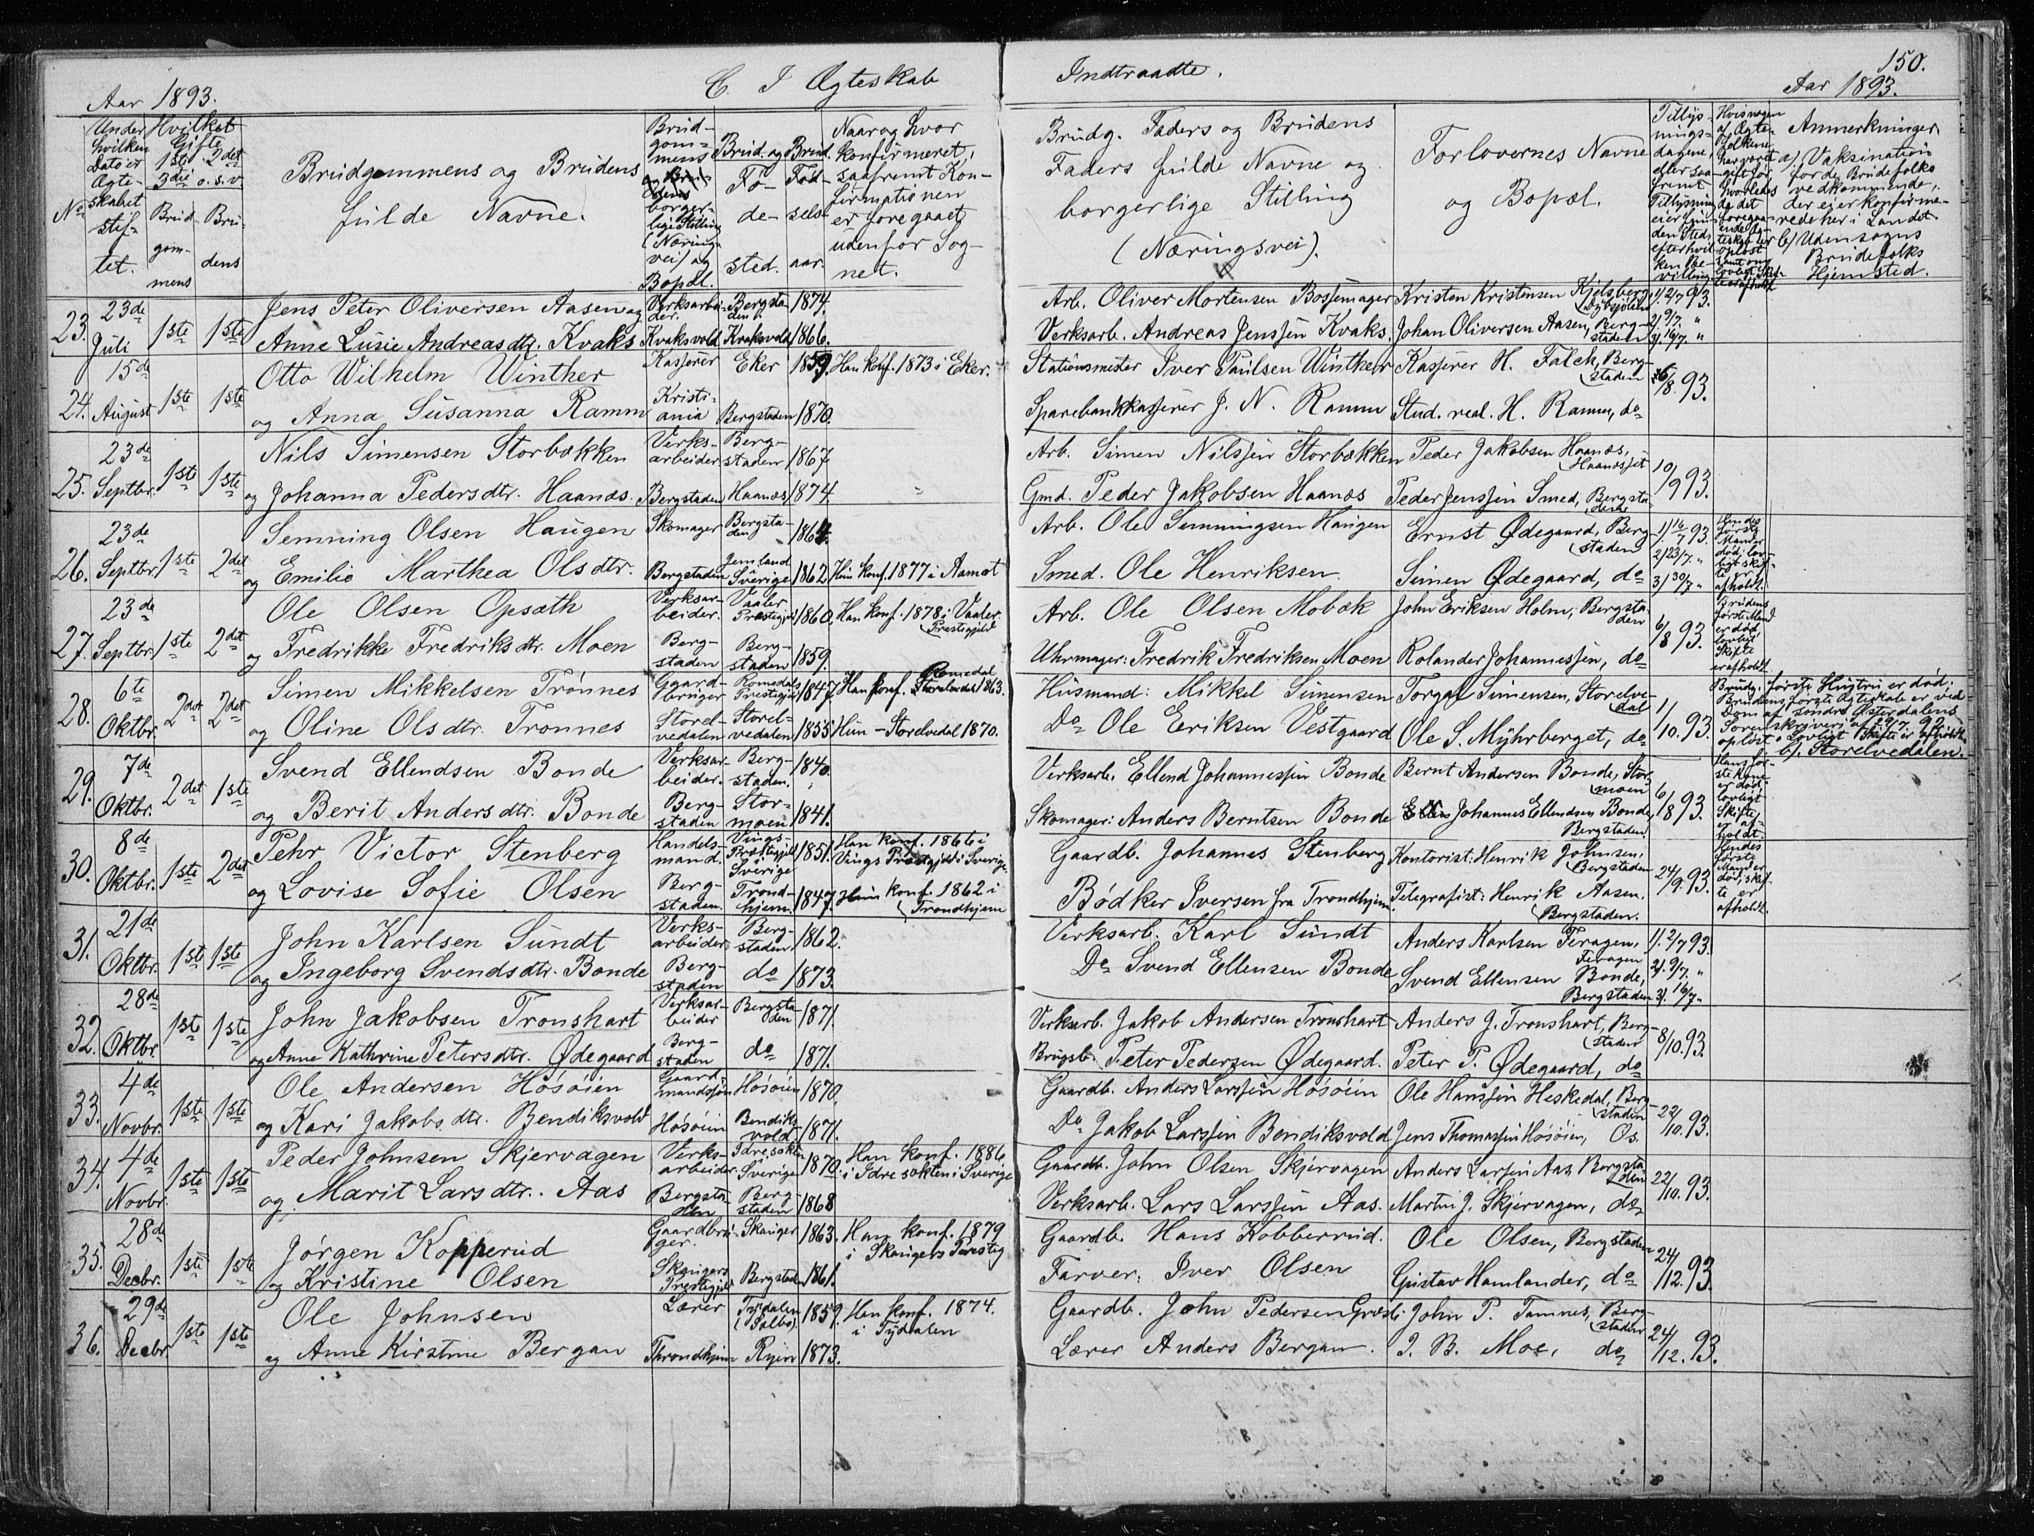 150.
Aar 1893.
C. I Ægteskab
Indtraadte.
Aar 1893.
No
Under hvilken Dato er Ægteskabet stiftet.
Hvilket Gifte 1ste 2det 3die o.s.v.
Brudgommens
Brudens
Brudgommens og Brudens fulde Navne.
Brudgommens og Brudens borgerlige Stilling (Næringsvei) og Bopæl.
Brud. og Brud.
Fødested.
Fødselsaar.
Naar og hvor konfirmeret, saafremt Konfirmationen er foregaaet udenfor Sognet.
Brudg. Faders og Brudens Faders fulde Navne og borgerlige Stilling (Næringsvei).
Forlovernes Navne og Bopæl.
Anmerkninger
a/ Vaksination for de Brudefolks vedkommende, der ei er konfirmerede her i Landet
b/ Udensogns Brudefolks Hjemsted.
23. 23de Juli 1ste 1ste
Jens Peter Oliversen Aasen og Verksarbeider. Bergstaden 1874.
Anne Lusie Andreasdtr. Kvaks Kvaksvold Kvaksvold 1866.
Arb. Oliver Mortensen Bossemager Kristen Kristensen Kjelsberg 1/ 2/7 93.
Verksarb. Andreas Jenssen Kvaks. Johan Oliversen Aasen, Bergstaden 2/ 9/7. " 3/ 16/7 "
24. 15de August 1ste 1ste
Otto Wilhelm Winther Kasserer Eker 1859. Han konf. 1873 i Eker.
og Anna Susanna Ramm Kristiania Bergstaden 1870.
Stationsmester Iver Paulsen Winther Kasserer H. Falch, Bergstaden 6/8. 93.
Sparebankkasserer J. N. Ramm Stud. real. H. Ramm, do
25. 23de Septbr. 1ste 1ste
Nils Simensen Storbækken Verksarbeider Bergstaden 1867
og Johanna Pedersdtr. Haanæs. Bergstaden Haanæs 1874
Arb. Simen Nilssen Storbækken Peder Jakobsen Haanæs, 10/9 93.
Gmd. Peder Jakobsen Haanæs Peder Jenssen Smed, Bergstaden
26. 23de Septbr. 1ste 2det
Semming Olsen Haugen Skomager Bergstaden 1864.
og Emilie Marthea Olsdtr. Bergstaden Jemtland Sverige 1862 Hun konf. 1877 i Aamot
Arb. Ole Semmingsen Haugen Ernst Ødegaard, Bergstaden 1/ 16/7 93.
Smed. Ole Henriksen Simen Ødegaard, do 2/ 23/7. " 3/ 30/7 "
27. 23de Septbr. 1ste 2det
Ole Olsen Opsæth Verksarbeider. Vaaler Præstegjeld 1860. Han konf. 1878 i Vaaler Præstegjeld
og Fredrikke Fredriksdtr. Moen Bergstaden Bergstaden 1859.
Arb. Ole Olsen Mobæk John Eriksen Holm, Bergstaden 6/8 93.
Uhrmager: Fredrik Fredriksen Moen Rolander Johannessen, do
Brudens første Mand er død. Lovligt Skifte er afholdt
28. 6te Oktbr. 2det 2det
Simen Mikkelsen Trønnes Gaardbruger Romedals Prestegjeld 1847 Han konf. Romedal 1863.
og Oline Olsdtr. Trønnes Storelvedalen Storelvedalen 1855 Hun – Storelvedal 1870.
Husmand: Mikkel Simensen Torgal Simensen, Storelvedal 1/10. 93.
Do Ole Eriksen Vestgaard Ole S. Myhrberget, do
Brudg. første Hustru er død. Brudens første Ægteskab er ved Dom af søndre Østerdalens Sorenskriveri af 29/7 92 opløst. Lovligt Skifte er afholdt
b/ Storelvedalen.
29. 7de Oktbr. 2det 1ste
Svend Ellendsen Bonde Verksarbeider. Bergstaden. 1840.
og Berit Andersdtr. Bonde Bergstaden Stormoen 1841.
Verksarb. Ellend Johannessen Bonde Bernt Andersen Bonde, Stormoen 6/8 93.
Skomager: Anders Berntsen Bonde Johannes Ellendsen Bonde Bergstaden
Hans første Kone er død. lovligt Skifte er afholdt.
30. 8de Oktbr. 1ste 2det
Pehr Victor Stenberg Handelsmand. Vings Prestegjeld i Sverige 1851. Han konf. 1866 i Vings Prestgjeld i Sverige
og Lovise Sofie Olsen Bergstaden. Trondhjem. 1847. Hun konf. 1862 i Trondhjem
Gaardb. Johannes Stenberg Kontorist: Henrik Johnsen, Bergstaden 24/9. 93.
Bødker Iversen fra Trondhjem Telegrafist: Henrik Aasen, Bergstaden.
Hendes første Mand er død, skifte er afholdt.
31. 21de Oktbr. 1ste 1ste
John Karlsen Sundt Verksarbeider Bergstaden. 1862.
og Ingeborg Svendsdtr. Bonde Bergstaden do 1873.
Verksarb. Karl Sundt Anders Karlsen Feragen, Feragen 1/ 2/7 93.
Do Svend Ellensen Bonde Svend Ellensen Bonde, Bergstaden 2/ 9/7. " 3/ 16/7 "
32. 28de Oktbr. 1ste 1ste
John Jakobsen Tronshart Verksarbeider Bergstaden 1871.
og Anne Kathrine Petersdtr. Ødegaard Bergstaden do 1871.
Verksarb. Jakob Andersen Tronshart Anders J. Tronshart, Bergstaden 8/10. 93.
Brugsb. Peter Pedersen Ødegaard. Peter P. Ødegaard, do
33. 4de Novbr. 1ste 1ste
Ole Andersen Høsøien Gaardmandssøn Høsøien 1870.
og Kari Jakobsdtr. Bendiksvold Høsøien Bendiksvold 1871.
Gaardb. Anders Larssen Høsøien Ole Hanssen Heskedal, Bergstaden 22/10. 93.
Do Jakob Larssen Bendiksvold Jens Thomassen Høsøien, Os.
34. 4de Novbr. 1ste 1ste
Peder Johnsen Skjervagen Verksarbeider Idresokten i Sverige 1870. Han konf. 1886 i Idresokten i Sverige
og Marit Larsdtr. Aas Bergstaden Bergstaden 1868
Gaardb. John Olsen Skjervagen Anders Larsen Aas Bergstaden 22/10. 93.
Verksarb. Lars Larssen Aas. Martin J. Skjervagen, do
35. 28de Decbr. 1ste 1ste
Jørgen Kopperud Gaardbruger. Skauger 1863. Han konf. 1879 i Skaugers Prestig
og Kristine Olsen Skaugers Prestegjeld Bergstaden 1861.
Gaardb. Hans Kobberrud. Ole Olsen, Bergstaden 24/12. 93.
Farver: Iver Olsen Gustav Hamlander, do
36. 29de Decbr. 1ste 1ste
Ole Johnsen Lærer Tydalen (Selbo) 1859. Han konf. 1874. i Tydalen
og Anne Kirstine Bergan Throndhjem Ryen 1873.
Gaardb. John Pedersen Græsli John P. Tamnes, Bergstaden 24/12. 93.
Lærer Anders Bergan. I. B. Moe, do